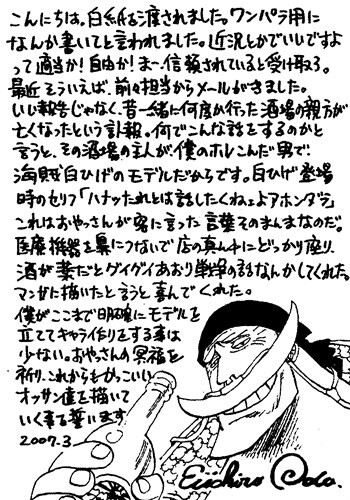 こんにちは。白紙を渡されました。ワンパラ用に
なんか書いてと言われました。近況とかでいいですよ
って適当か!自由か!ま〜信頼されていると受け取ろう。
最近そういえば、前々担当からメールがきました。
いい報告じゃなく、昔一緒に何度か行った酒場の親方が
亡くなったという訃報。何でこんな話をするのかと
言うと、その酒場の主人が、僕のホレこんだ男で、
海賊白ひげのモデルだからです。白ひげ登場
時のセリフ「ハナッたれとは話したくねェよアホンダラ」
これはおやっさんが客に言った言葉そのまんまなのだ。
医療機器を鼻につないで店の真ん中にどっかり座り、
酒が薬だとグイグイあおり戦争の話なんかしてくれた。
マンガに描いたと言うと喜んでくれた。
僕がここまで明確にモデルを
立ててキャラ作りをする事は
少ない。おやさんの冥福を
祈り、これからもかっこいい
オッサン達を描いて
いく事を誓います。
2007.3.
Eiichiro Oda.